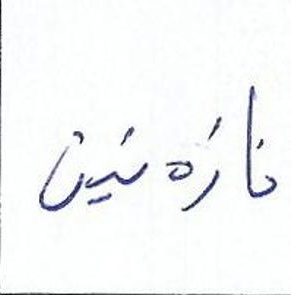 نازەنین